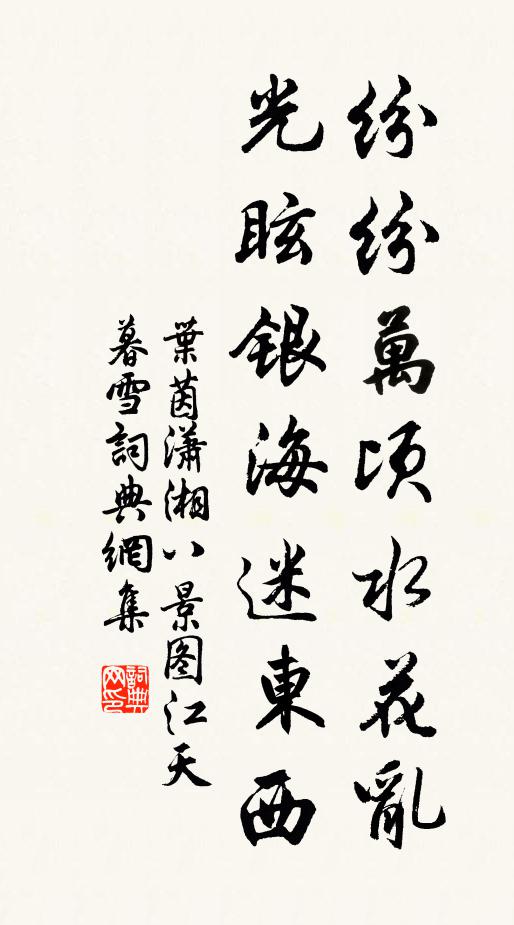 紛紛萬頃水花亂
光眩銀海迷東西
葉茵瀟湘八景图江天
暮雪詞典網集
詞典网印